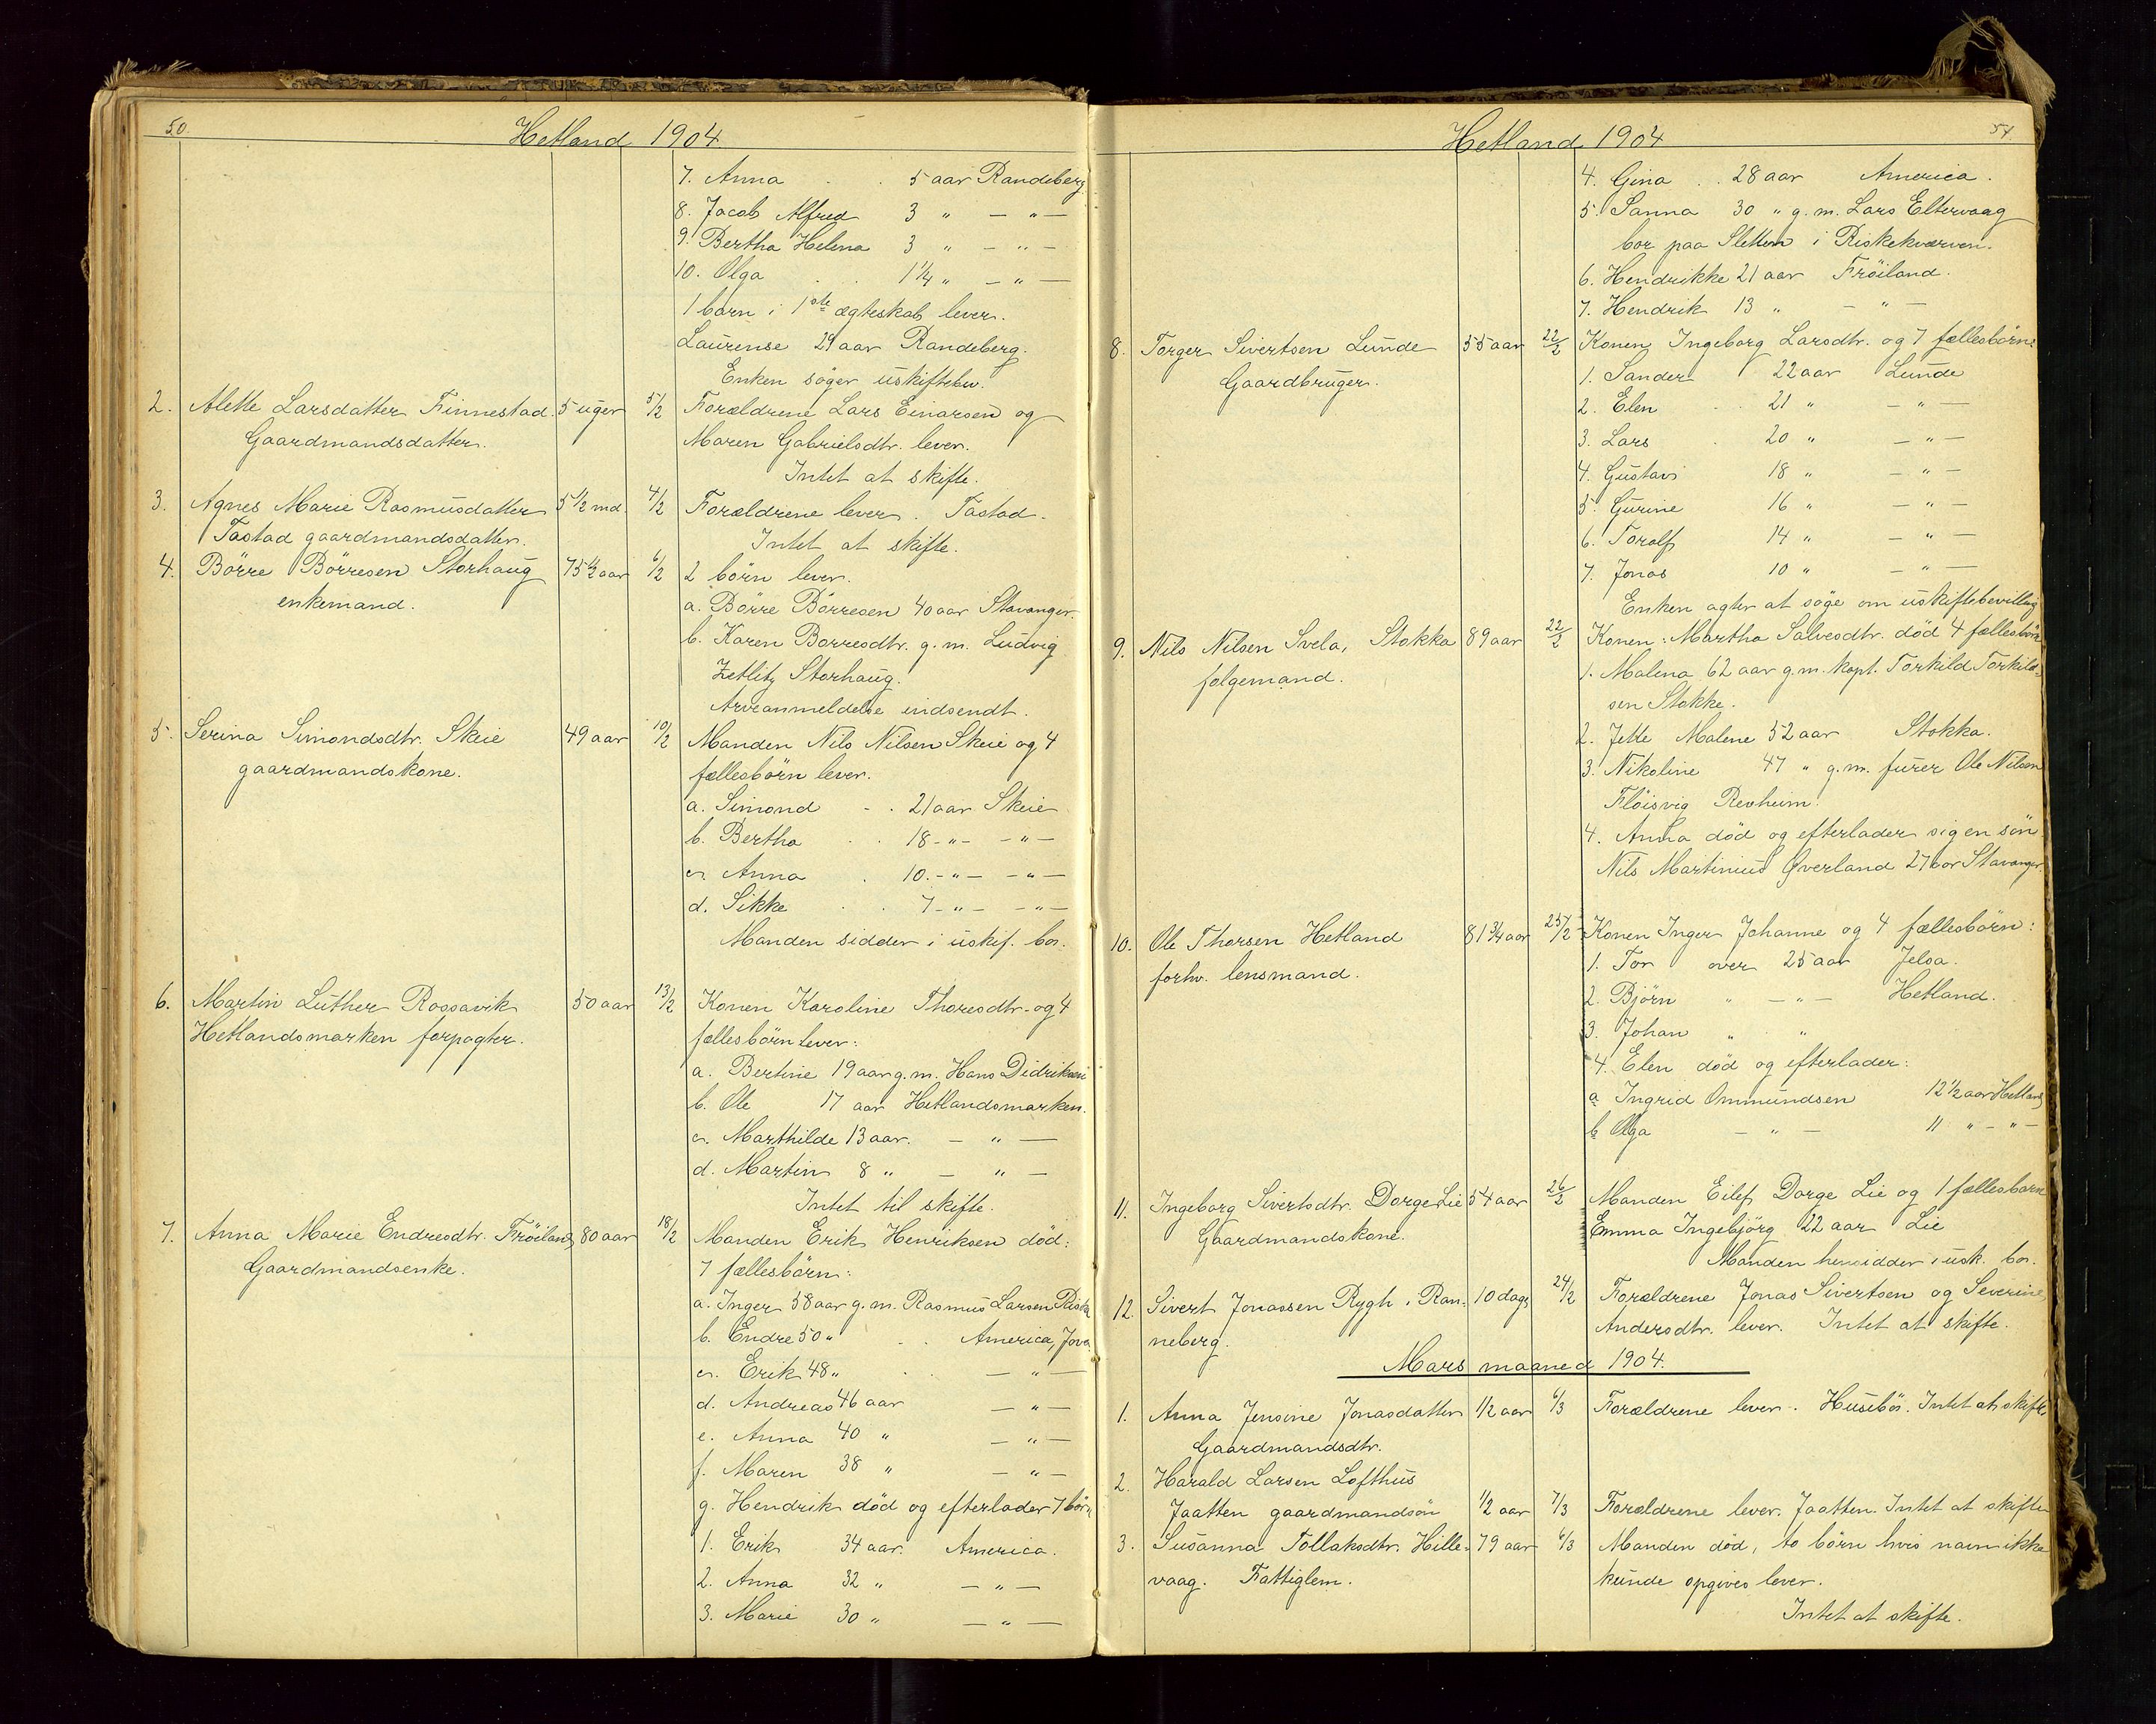 50.
Hetland 1904
7. Anna . . 5 aar Randeberg
8. Jacob Alfred 3 " — " —
9. Bertha Helena 3 " — " —
10. Olga . . 1 1/4 " — " —
1 barn i 1ste ægteskab lever.
Laurense 29 aar Randeberg.
Enken søger uskiftebev.
2. Alette Larsdatter Finnestad. 5 uger 5/2 Forældrene Lars Einarsen og
Gaardmandsdatter. Maren Gabrielsdtr. lever.
Intet at skifte.
3. Agnes Marie Rasmusdatter 5 1/2 md. 4/2 Forældrene lever. Tastad.
Tastad gaardmandsdatter. Intet at skifte.
4. Börre Börresen Storhaug 75 1/2 aar 6/2 2 börn lever.
enkemand. a. Börre Börresen 40 aar Stavanger.
b. Karen Borresdtr. g. m. Ludvig
Zetlitz Storhaug.
Arveanmeldelse indsendt.
5. Serina Simondsdtr. Skeie 49 aar 10/2 Manden Nils Nilsen Skeie og 4
gaardmandskone. fællesbörn lever.
a. Simond - . 21 aar Skeie
b. Bertha . . 18 - " - - " -
c. Anna . 10. - " - - " -
d. Sikke . . 7 - " - - " -
Manden sidder i uskif. bo.
6. Martin Luther Rossavik 50 aar 13/2 Konen Karoline Thoresdtr. og 4
Hetlandsmarken forpagter. fællesbörn lever:
a. Bertine 19 aar g. m. Hans Didriksen
b. Ole 17 aar Hetlandsmarken.
c. Marthilde 13 aar. — " —
d. Martin 8 " — " —
Intet til skifte.
7. Anna Marie Endresdtr. Fröiland 80 aar 18/2 Manden Erik Henriksen död:
Gaardmandsenke. 7 fællesbörn:
a. Inger 58 aar g. m. Rasmus Larsen Riska
b. Endre 50 " . . America, Jova
c. Erik 48 " . . — " —
d. Andreas 46 aar — " —
e. Anna 40 " — " —
f. Maren 38 " — " —
g. Hendrik död og efterlader 7 börn
1. Erik 34 aar. America.
2. Anna 32 " — " —
3. Marie 30 " — " —
51
Hetland 1904
4. Gina . . 28 aar America.
5. Sanna 30 " g. m. Lars Eltervaag
bor paa Sletten i Riskekværven.
6. Hendrikke 21 aar Fröiland.
7. Hendrik 13 " — " —
8. Torger Sivertsen Lunde 55 aar 22/2 Konen Ingeborg Larsdtr. og 7 fællesbörn:
Gaardbruger. 1. Sander 22 aar Lunde
2. Elen . . 21 " — " —
3. Lars . 20 " — " —
4. Gustav 18 " — " —
5. Gurine 16 " — " —
6. Torolf 14 " — " —
7. Jonas 10 " — " —
Enken agter at söge om uskiftebevilling
9. Nils Nilsen Svela, Stokka 89 aar 22/2 Konen: Martha Salvesdtr. död 4 fællesbörn
folgemand. 1. Malena 62 aar g. m. kapt. Torkild Torkild-
sen Stokke.
2. Jette Malene 52 aar Stokka.
3. Nikoline 47 " g. m. furer Ole Nilsen
Flöisvig Revheim.
4. Anna död og efterlader sig en sön
Nils Martinius Øverland 27 bor Stavanger.
10. Ole Thorsen Hetland 81 3/4 aar 25/2 Konen Inger Johanne og 4 fællesbörn:
forhv. lensmand. 1. Tor over 25 aar Jelsa.
2. Björn " — " — Hetland.
3. Johan " "
4. Elen död og efterlader:
a Ingrid Ommundsen 12 1/2 aar Hetland
b Olga — " — 11 " — " —
11. Ingeborg Sivertsdtr. Dorge Lie 54 aar 26/2 Manden Eilef Dorge Lie og 1 fællesbarn
Gaardmandskone. Emma Ingebjörg 22 aar Lie
Manden hensidder i usk. bo.
12. Sivert Jonassen Rygh, Ran- 10 dage 24/2 Forældrene Jonas Sivertsen og Severine
neberg. Andersdtr. lever. Intet at skifte.
Mars maaned 1904.
1. Anna Jensine Jonasdatter 1/2 aar 6/3 Forældrene lever. Husebö. Intet at skifte
Gaardmandsdtr.
2. Harald Larsen Lofthus
Jaatten gaardmandsön 1/2 aar 7/3 Forældrene lever. Jaatten. Intet at skifte
3. Susanna Tollaksdtr. Hille- 79 aar 6/3 Manden död, to börn hvis navn ikke
vaag. Fattiglem. kunde opgives lever.
Intet at skifte.